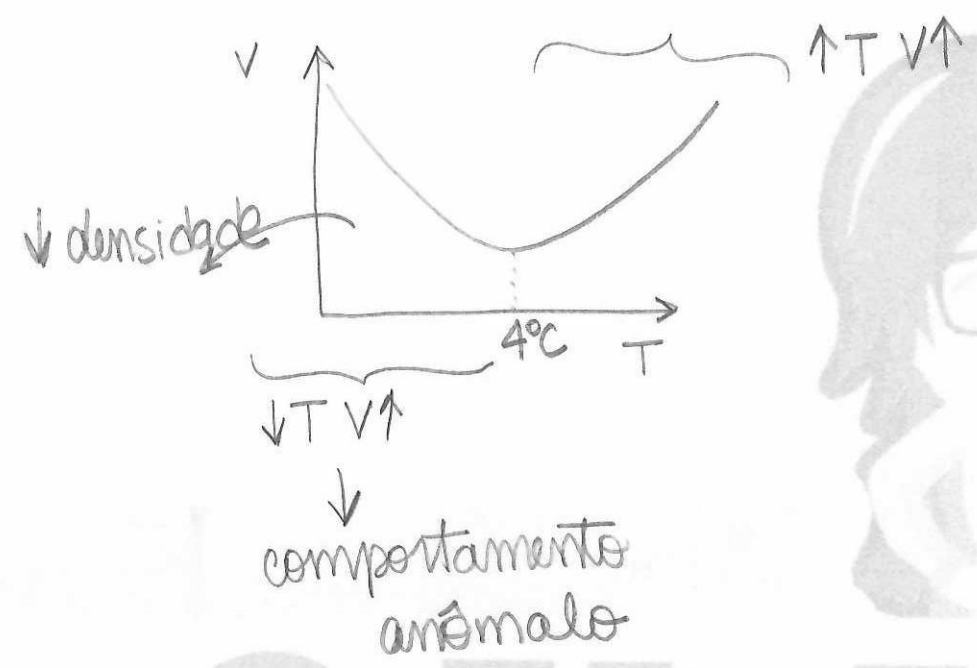 V
↑T V↑
↓ densidade
4°C
T
↓T V↑
↓
comportamento
anômalo